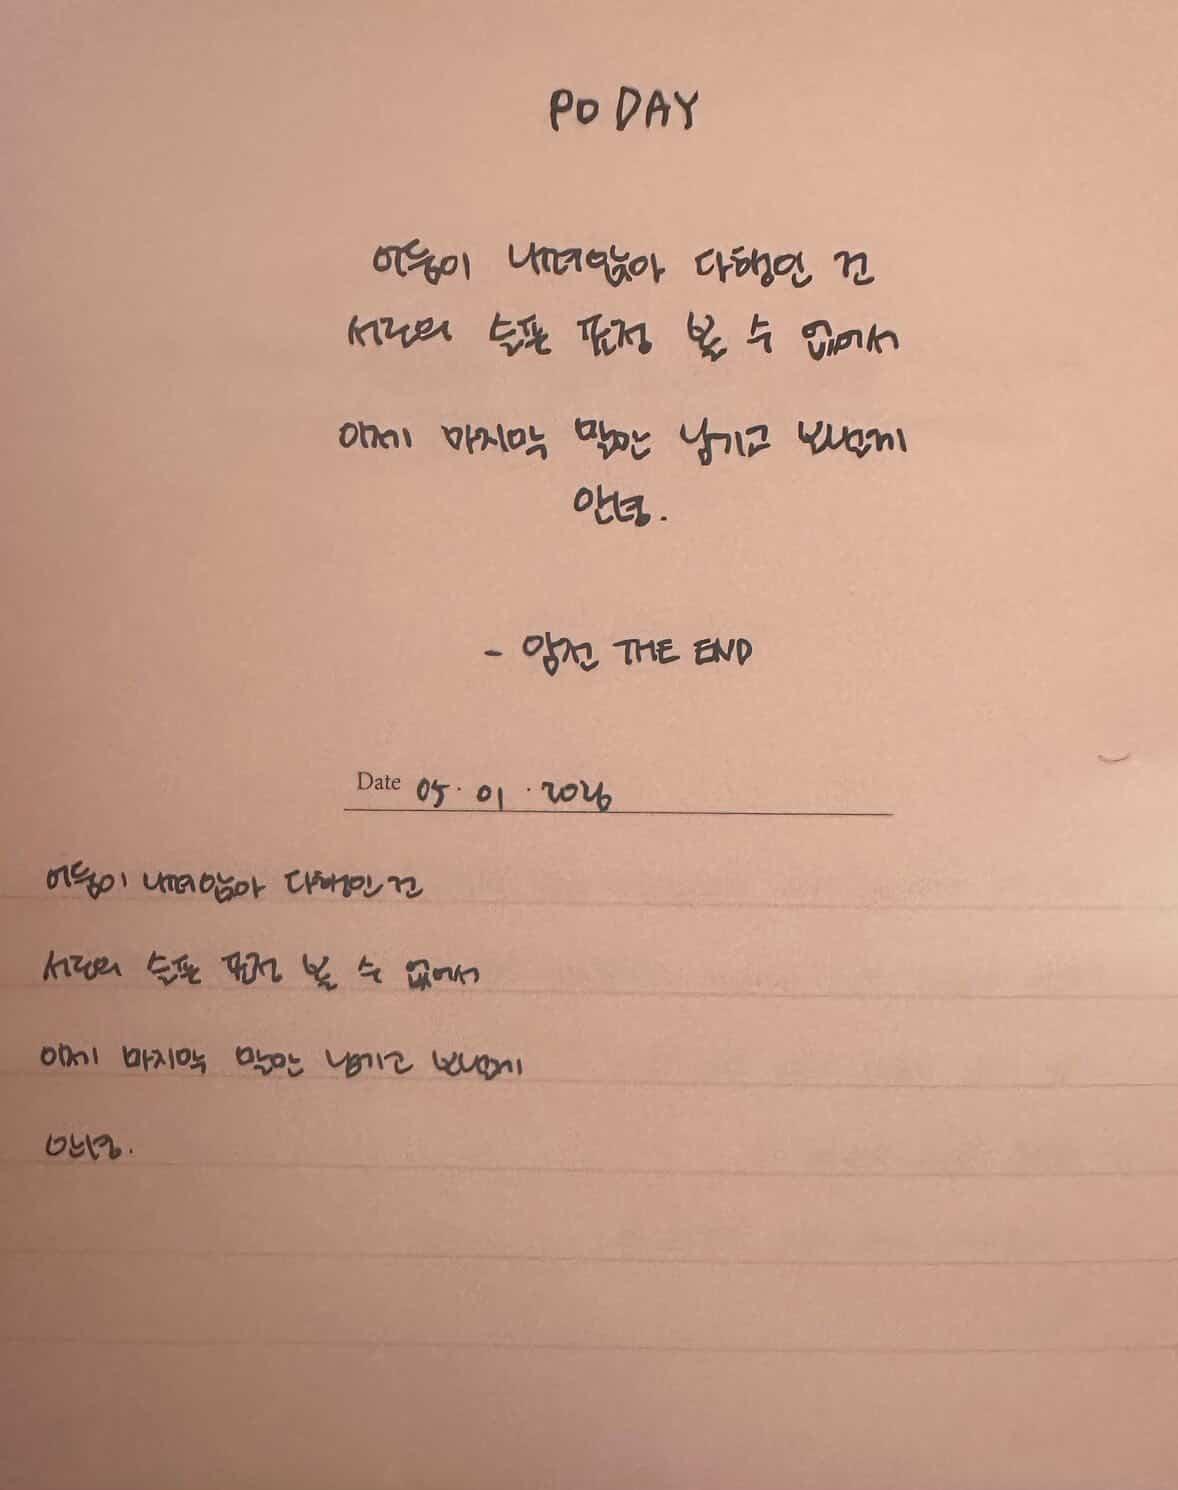 PO DAY
어둠이 내려앉아 다행인 건
서로의 슬픈 표정 볼 수 없어서
이제 마지막 말만 남기고 보낼게
안녕.
- 암전 THE END
Date 05. 01. 2026
어둠이 내려앉아 다행인 건
서로의 슬픈 표정 볼 수 없어서
이제 마지막 말만 남기고 보낼게
안녕.